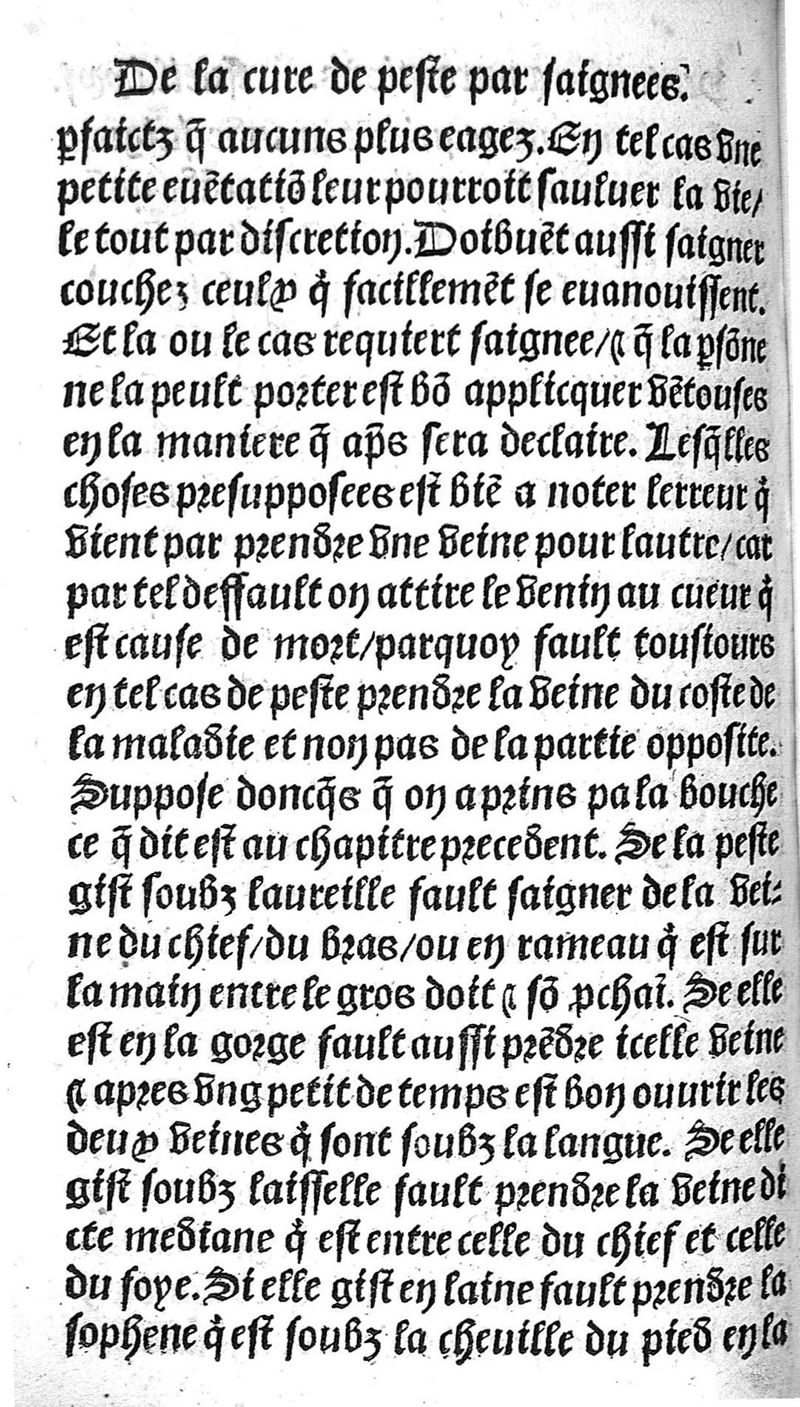 De la cure de peste par saignees.
ꝑfaictz q̃ aucuns plus eagez. En tel cas vne
petite euẽtatiõ leur pourroit sauluer la vie/
le tout par discretion. Doibuẽt aussi saigner
couchez ceulx q̇ facillemẽt se euanouissent.
Et la ou le cas requiert saignee/⁊ q̃ la ꝑsõne
ne la peult porter est bõ applicquer vẽtouses
en la maniere q̃ ap̃s sera declaire. Lesq̃lles
choses presupposees est biẽ a noter lerreur q̇
vient par prendre vne veine pour lautre/car
par tel deffault on attire le venin au cueur q̇
est cause de mort/parquoy fault tousiours
en tel cas de peste prendre la veine du coste de
la maladie et non pas de la partie opposite.
Suppose doncq̃s q̃ on a prins pa la bouche
ce q̃ dit est au chapitre precedent. Se la peste
gist soubz laureille fault saigner de la vei⸗
ne du chief/du bras/ou en rameau q̇ est sur
la main entre le gros doit ⁊ sõ ꝓchaĩ. Se elle
est en la gorge fault aussi prẽdre icelle veine
⁊ apres vng petit de temps est bon ouurir les
deux veines q̇ sont soubz la langue. Se elle
gist soubz laisselle fault prendre la veine di
cte mediane q̇ est entre celle du chief et celle
du foye. Si elle gist en laine fault prendre la
sophene q̇ est soubz la cheuille du pied en la